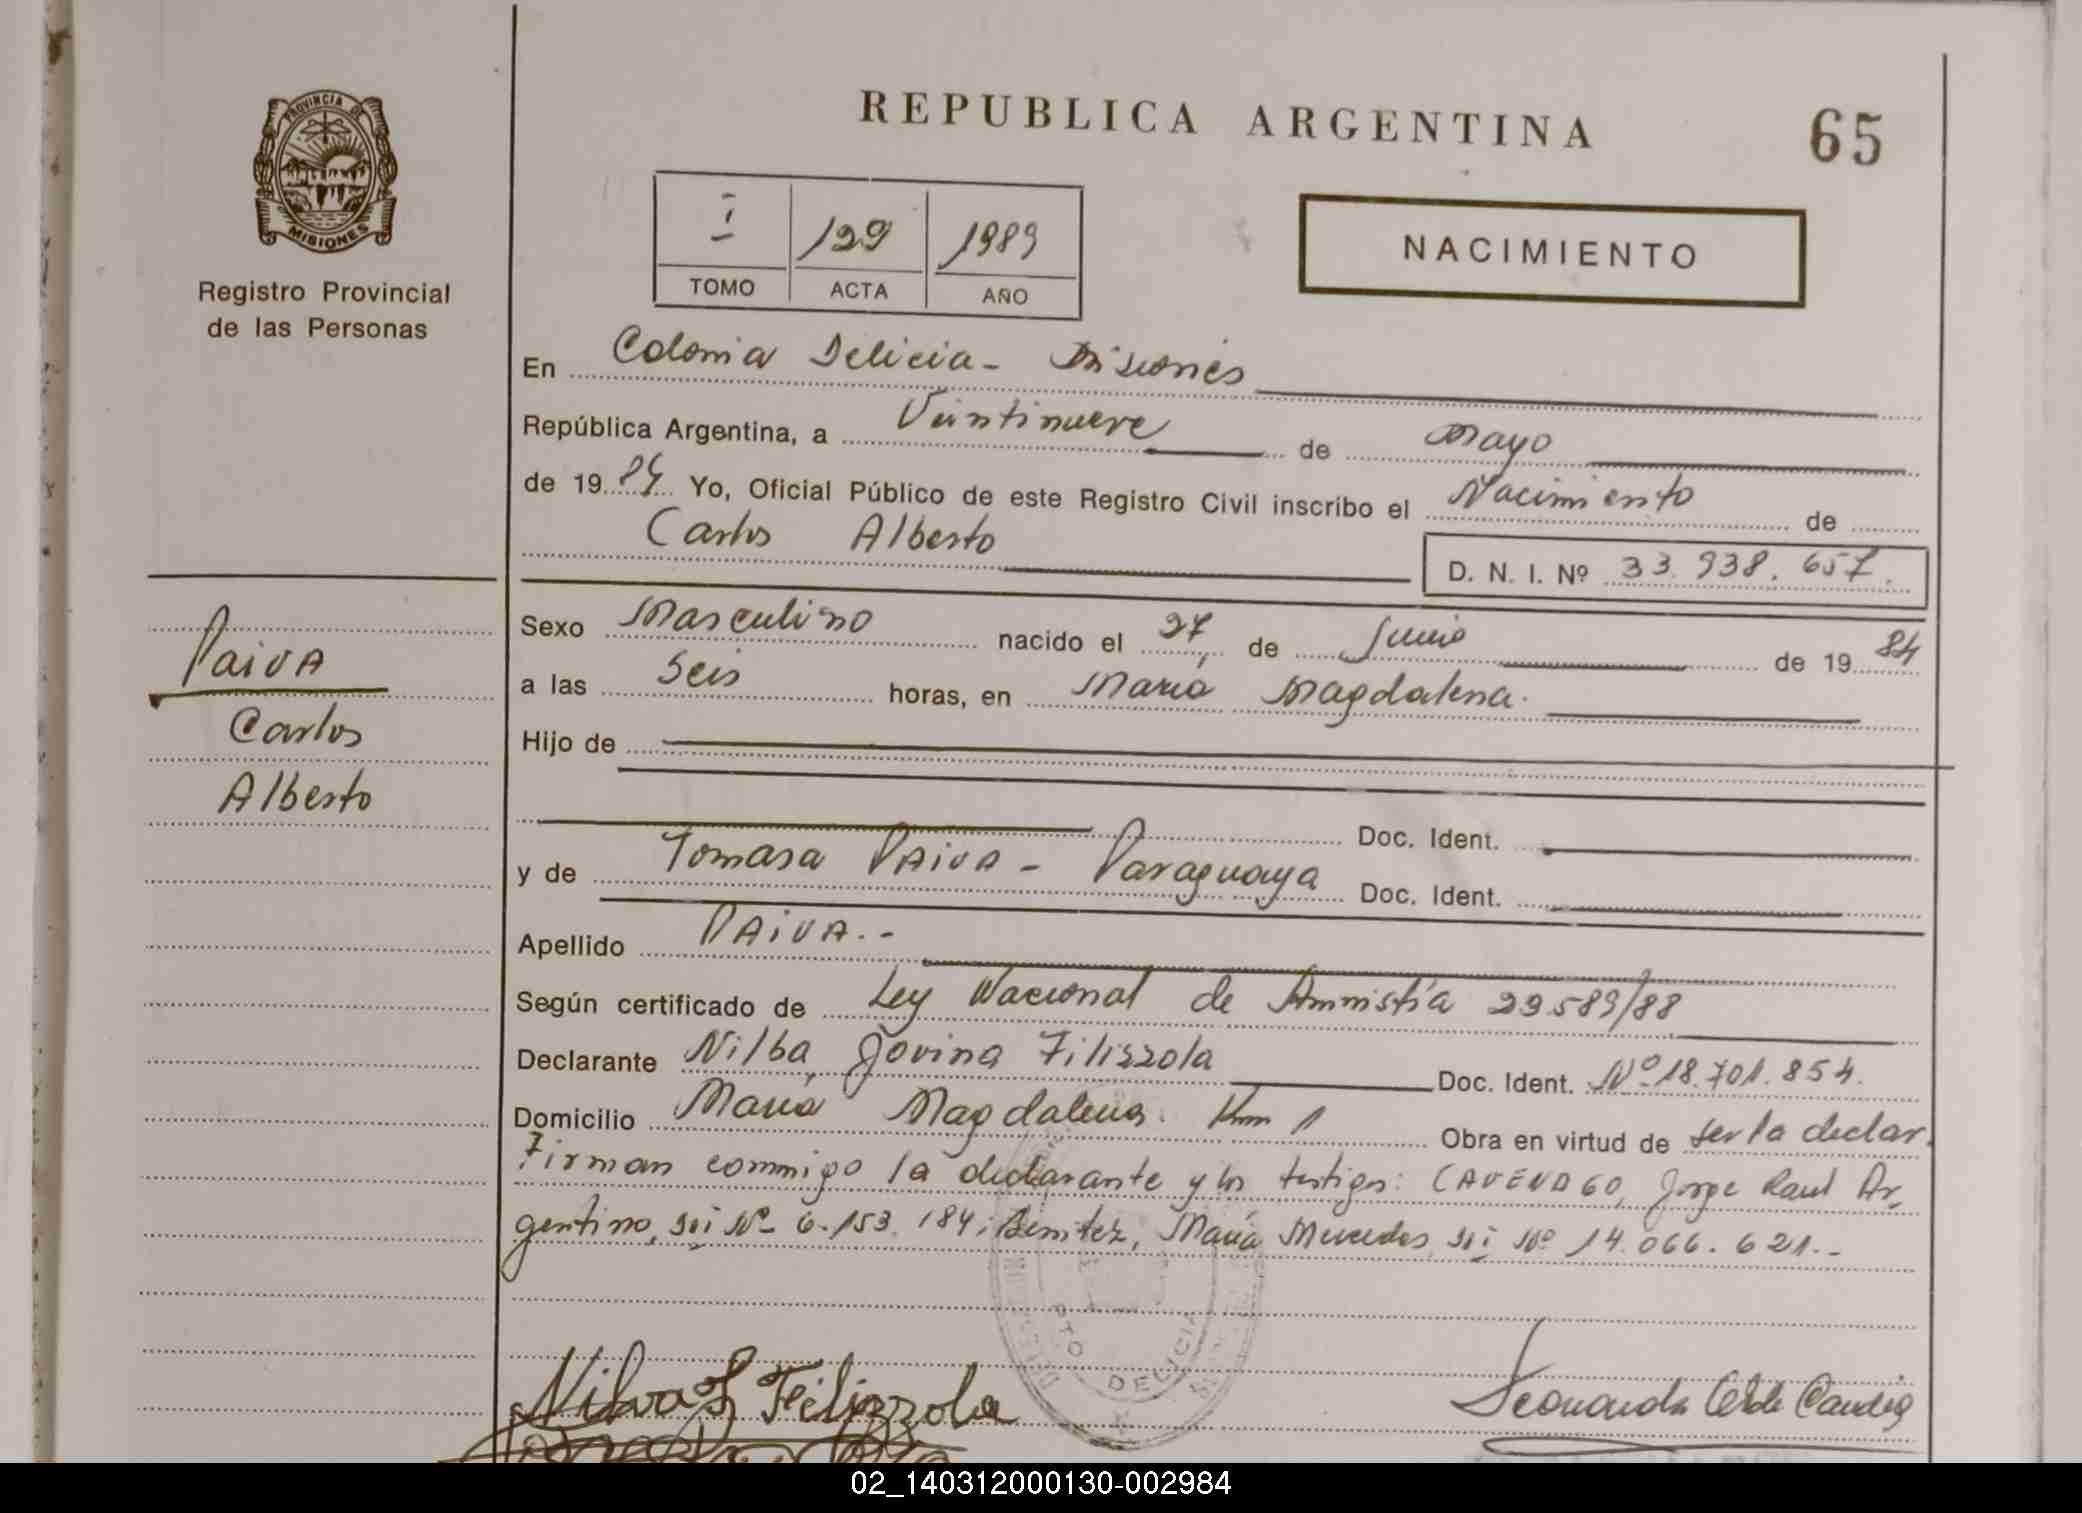 REPUBLICA ARGENTINA
65
PROVINCIA DE
MISIONES
Registro Provincial
de las Personas
I 129 1989
TOMO ACTA AÑO
NACIMIENTO
En Colonia Delicia - Misiones
República Argentina, a Veintinueve de Mayo
de 1989 Yo, Oficial Público de este Registro Civil inscribo el Nacimiento de
Carlos Alberto
D. N. I. Nº 33.938.657.
Paiva
Carlos
Alberto
Sexo Masculino nacido el 27, de Junio de 1984
a las Seis horas, en María Magdalena.
Hijo de
Doc. Ident.
y de Tomasa PAIVA - Paraguaya Doc. Ident.
Apellido PAIVA.-
Según certificado de Ley Nacional de Amnistía 23589/88
Declarante Nilba Jovina Filizzola Doc. Ident. Nº 18.701.854.
Domicilio María Magdalena. Km 1 Obra en virtud de ser la declar.
Firman conmigo la declarante y los testigos: CAVENAGO, Jorge Raul Ar-
gentino, Nº 6.153.184; Benitez, María Mercedes Nº 14.066.621.-
PTO DELICIA
Nilva J Filizzola